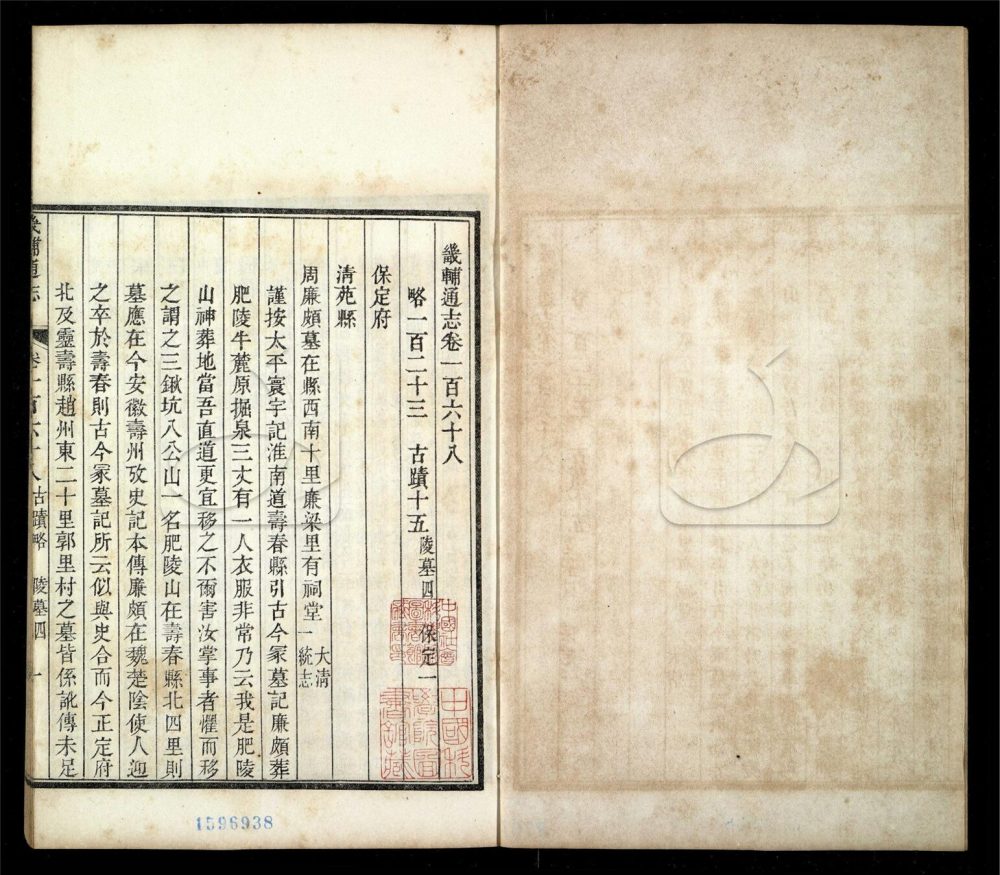 畿輔通志卷一百六十八
略一百二十三 古蹟十五 陵墓四 保定一
保定府
清苑縣
周廉頗墓在縣西南十里廉梁里有祠堂 大清一統志
謹按太平寰宇記淮南道壽春縣引古今冢墓記廉頗葬
肥陵牛麓原掘泉三丈有一人衣服非常乃云我是肥陵
山神葬地當吾直道更宜移之不爾害汝掌事者懼而移
之謂之三鍬坑八公山一名肥陵山在壽春縣北四里則
墓應在今安徽壽州攷史記本傳廉頗在魏楚陰使人迎
之卒於壽春則古今冢墓記所云似與史合而今正定府
北及靈壽縣趙州東二十里郭里村之墓皆係訛傳未足
畿輔通志 卷一百六十八 古蹟略 陵墓四 一
1596938